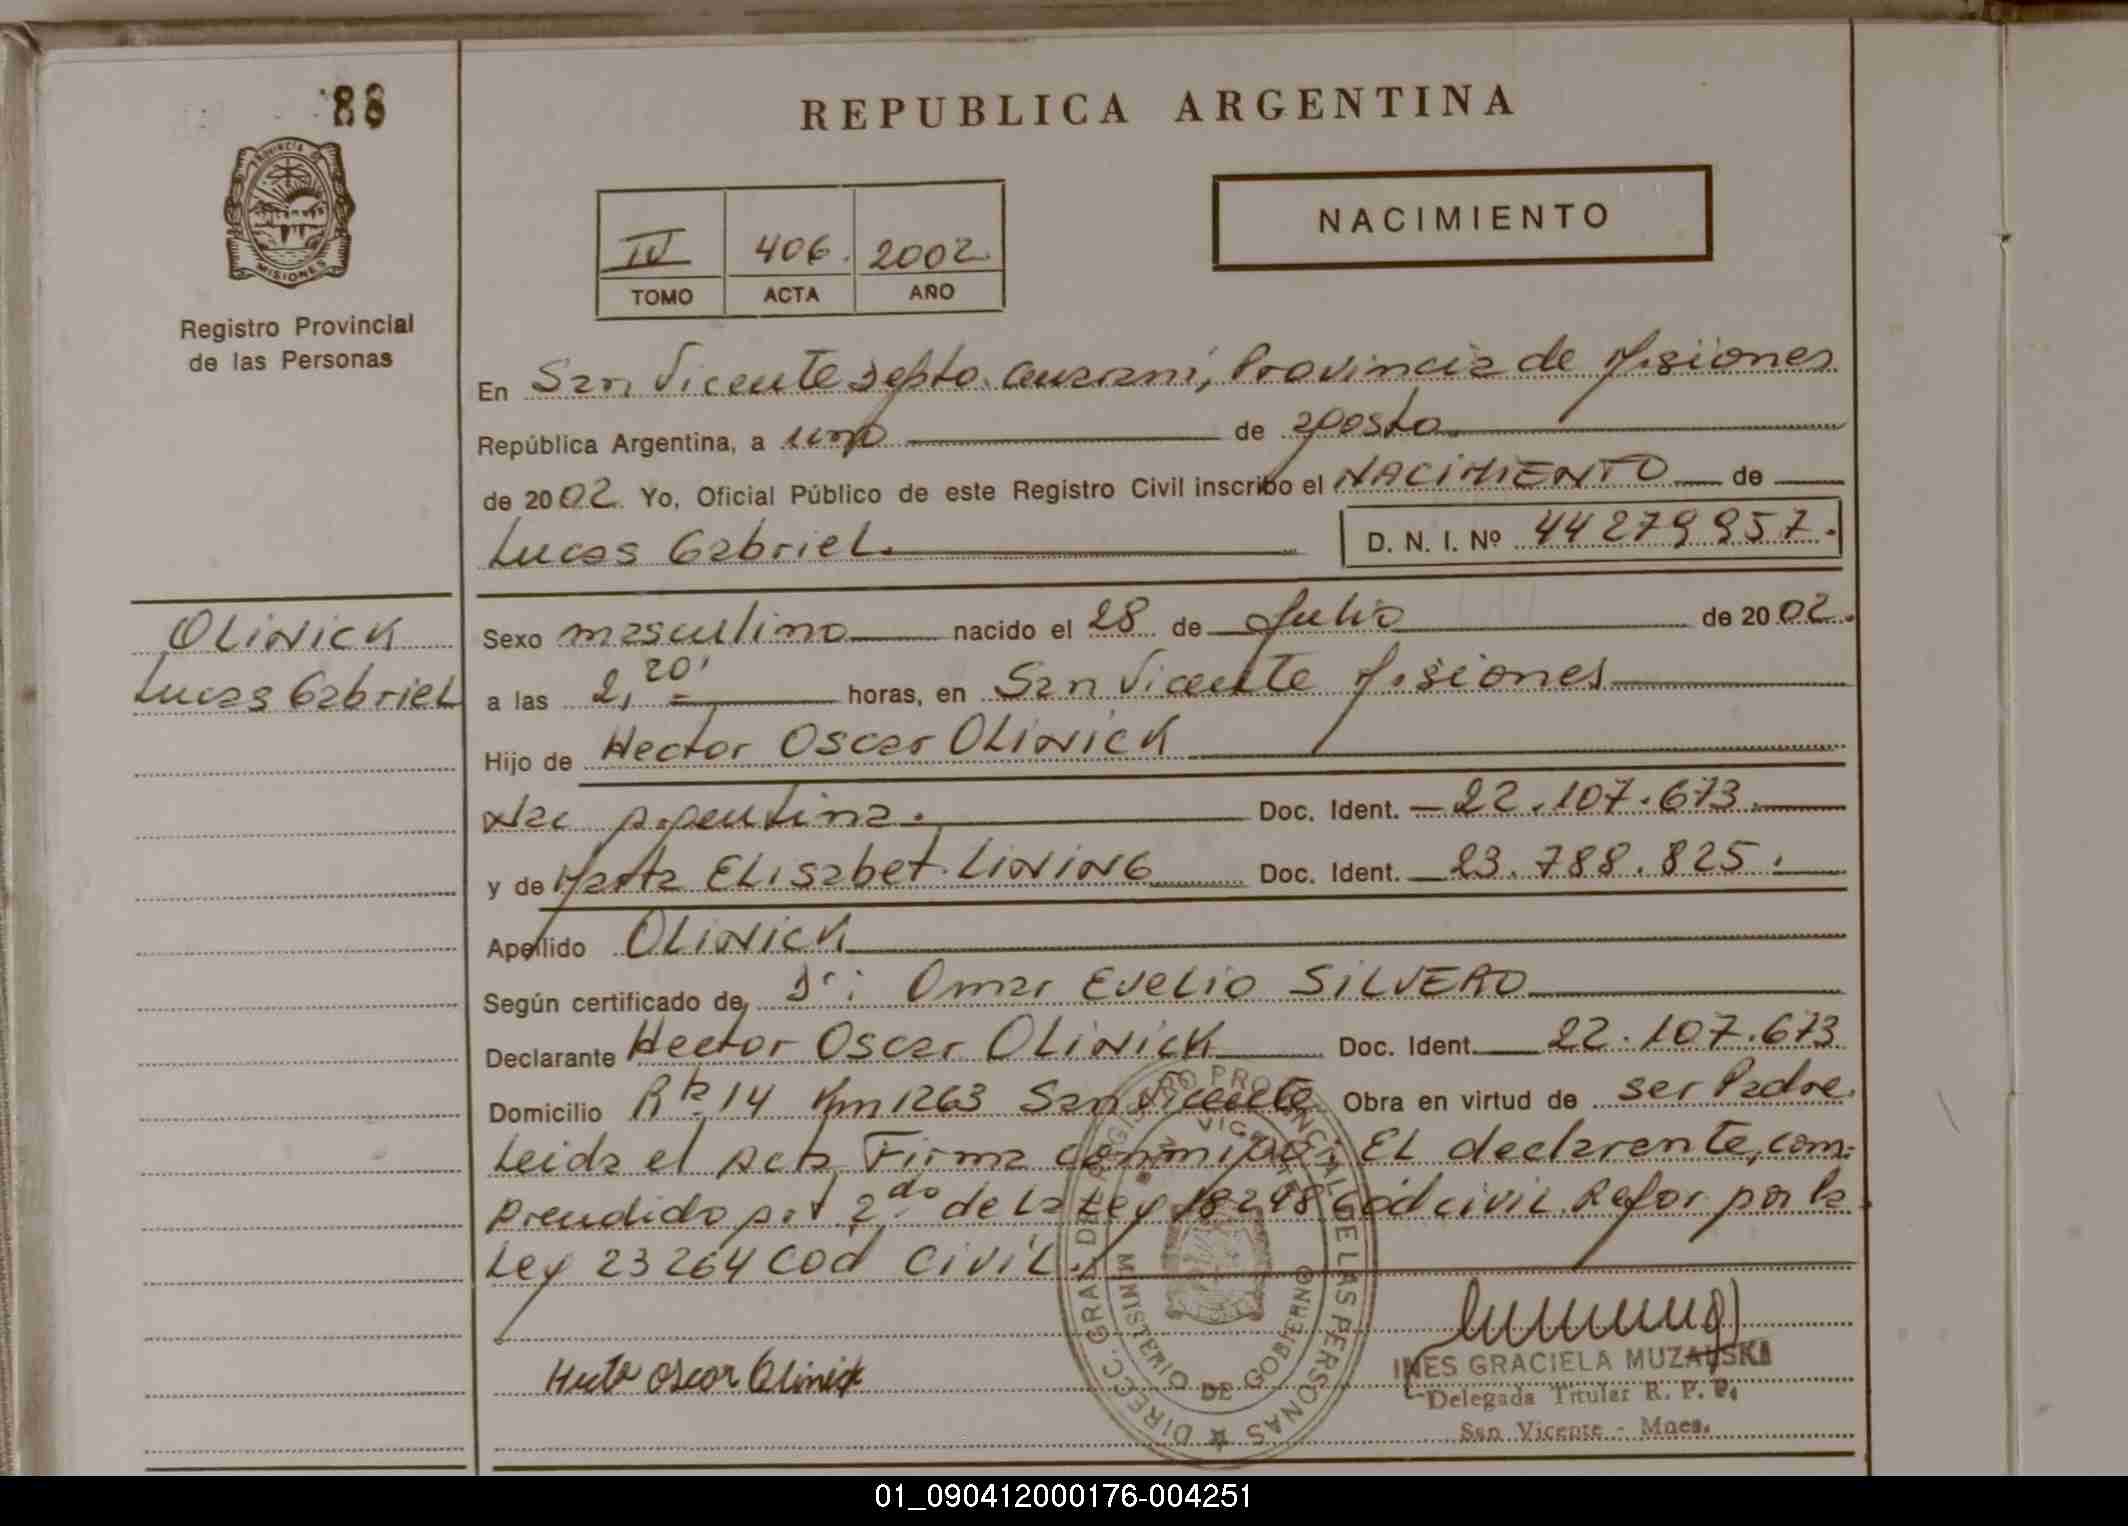 88
REPUBLICA ARGENTINA
PROVINCIA DE
MISIONES
Registro Provincial
de las Personas
NACIMIENTO
IV 406. 2002.
TOMO ACTA AÑO
En San Vicente Depto. Guarani, Provincia de Misiones
República Argentina, a uno de agosto.
de 2002. Yo, Oficial Público de este Registro Civil inscribo el NACIMIENTO de
Lucas Gabriel. D. N. I. Nº 44279957.
OLINICK
Lucas Gabriel
Sexo masculino nacido el 28 de Julio de 2002.
a las 2,20' horas, en San Vicente Misiones
Hijo de Hector Oscar OLINICK
Nac Argentina. Doc. Ident. 22.107.673.
y de Marta ELisabet LINING Doc. Ident. 23.788.825.
Apellido OLINICK
Según certificado de, Dr: Omar EveLio SILVERO
Declarante Hector Oscar OLINICK Doc. Ident. 22.107.673
Domicilio Rta 14 Km 1263 San Vicente Obra en virtud de ser Padre.
Leida el Acta Firma conmigo: EL declarante, com-
prendido Art 2do de La Ley 18248 Cod civil. Refor por la
Ley 23264 Cod CiviL.
DIRECC. GRAL. DEL REGISTRO PROVINCIAL DE LAS PERSONAS
MINISTERIO DE GOBIERNO
Hector Oscar Olinick
INES GRACIELA MUZALSKI
Delegada Titular R. P. P.
San Vicente - Mnes.
01_090412000176-004251